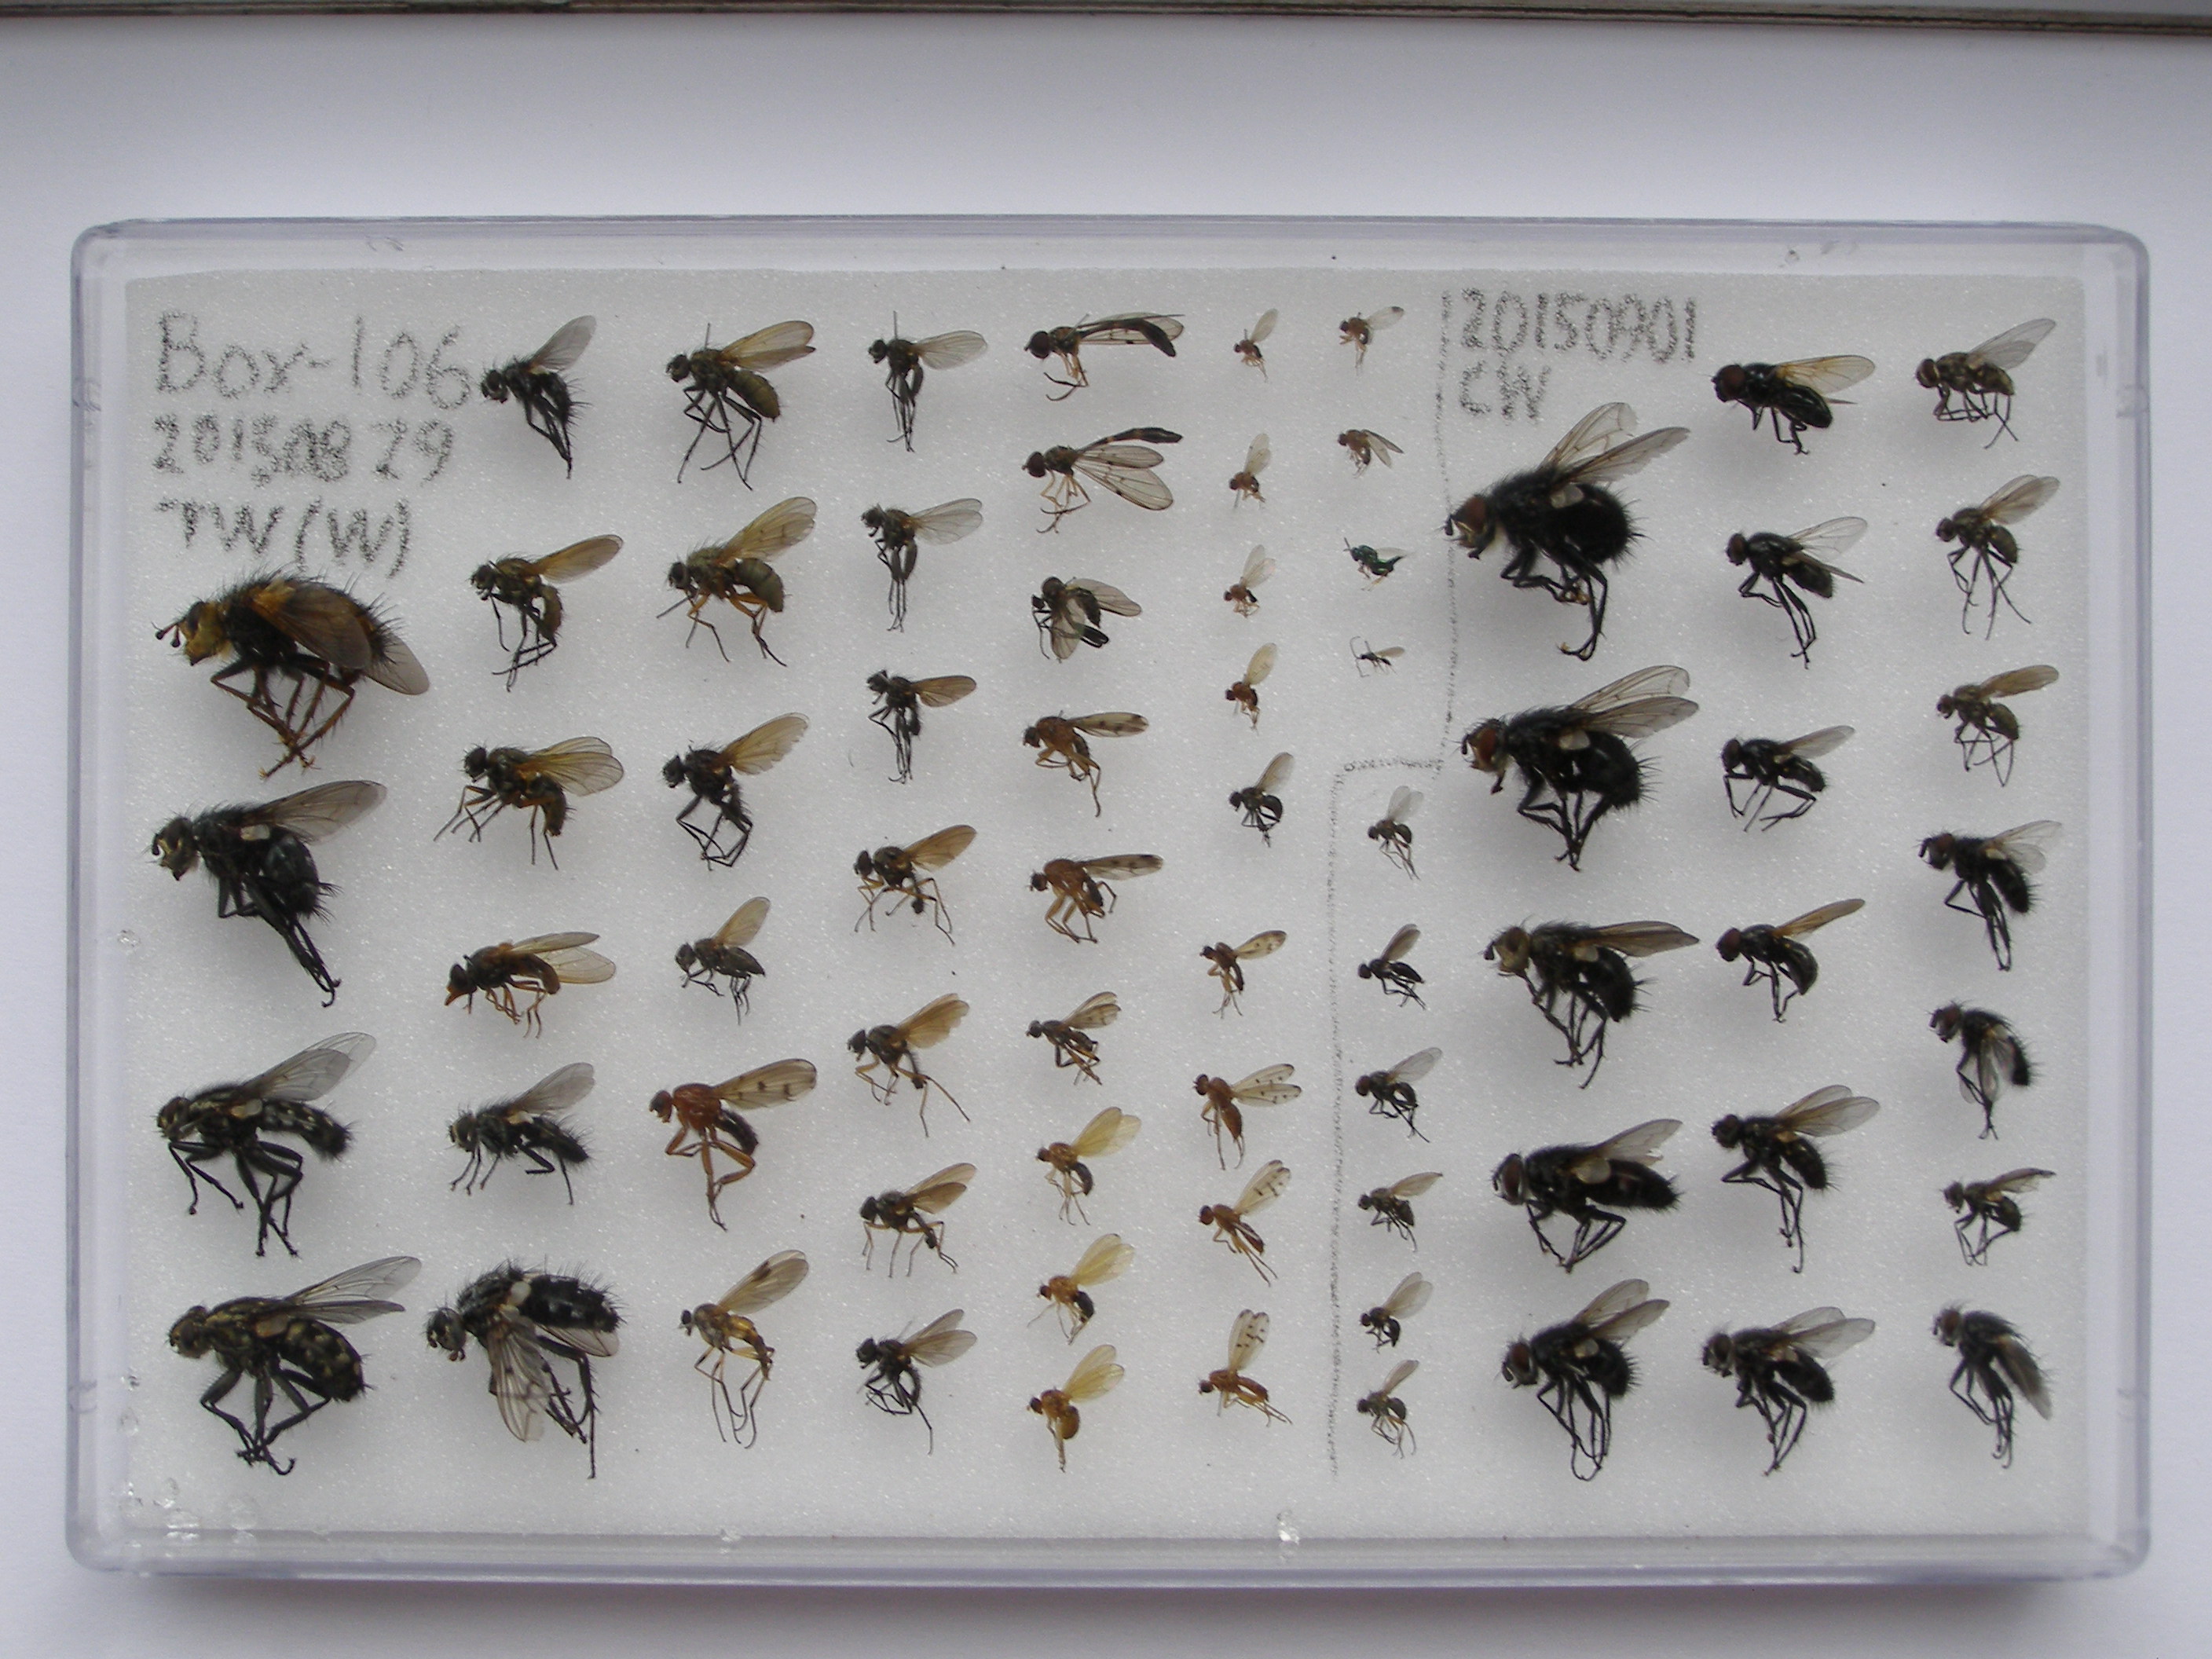 Box-106
20150829
TW(W)
20150901
CW